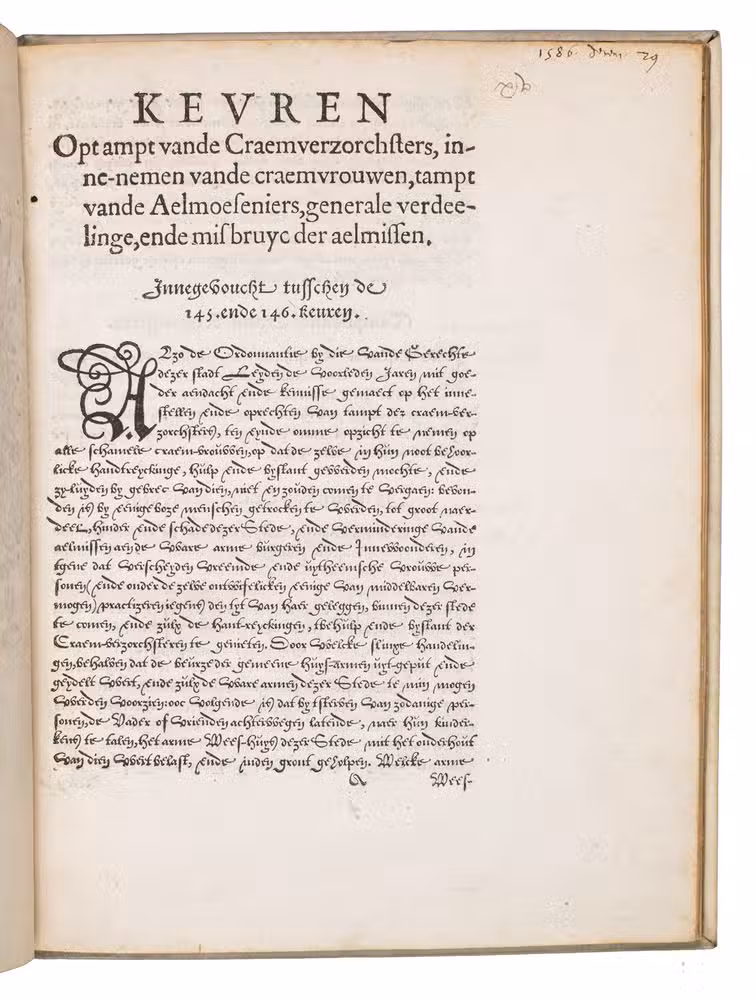 1586.
KEVREN
Opt ampt vande Craemverzorchsters, in-
ne-nemen vande craemvrouwen, tampt
vande Aelmoeseniers, generale verdee-
linge, ende misbruyc der aelmissen.
Innegevoucht tusschen de
145. ende 146. keuren.
Alzo de Ordonnantie by die vande Gerechte
dezer stadt Leyden de voorleden Jaren mit goe-
der aendacht ende kennisse gemaect op het inne-
stellen ende oprechten van tampt der craem-ver-
zorchsters, ten eynde omme opzicht te nemen op
alle schamele craem-vrouwen, op dat de zelve in hun noot behoor-
licke handtreyckinge, hulp ende bystant gewerden mochte, ende
zy-luyden by gebrec van dien, niet en zouden comen te vergaen: bevon-
den is by eenige boze menschen getrocken te werden, tot groot naer-
deel, hinder ende schade dezer Stede, ende verminderinge vande
aelmissen aen de ware arme burgeren ende Innewoonderen, in
tgene dat verscheyden vreemde ende uytheemsche vrouwe per-
sonen (ende onder de zelve ontwifelicken eenige van middelbaren ver-
mogen) practizeren jegens den tyt van haer geleggen, binnen dezer stede
te comen, ende zulx de hant-reyckingen, tbehulp ende bystant der
Craem-verzorchsteren te genieten. Door welcke slinxe handelin-
gen, behalven dat de beurze der gemeene huys-armen uyt-geput ende
geydelt wert, ende zulx de ware armen dezer Stede te min mogen
werden voorzien: ooc volgende is dat by tsterven van zodanige per-
sonen, de Vader of vrienden achterwegen latende, naer hun kinder-
kens te talen, het arme Wees-huys dezer Stede mit het onderhout
van dien wert belast, ende inden gront geholpen. Welcke arme
Wees-